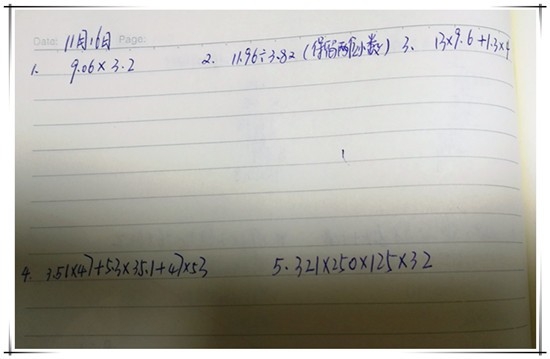 Date: 11月16日 Page:
1. 9.06×3.2 2. 11.96÷3.82(保留两位小数) 3. 13×9.6+1.3×4
4. 3.51×47+5.3×35.1+47×53 5. 321×250×125×32